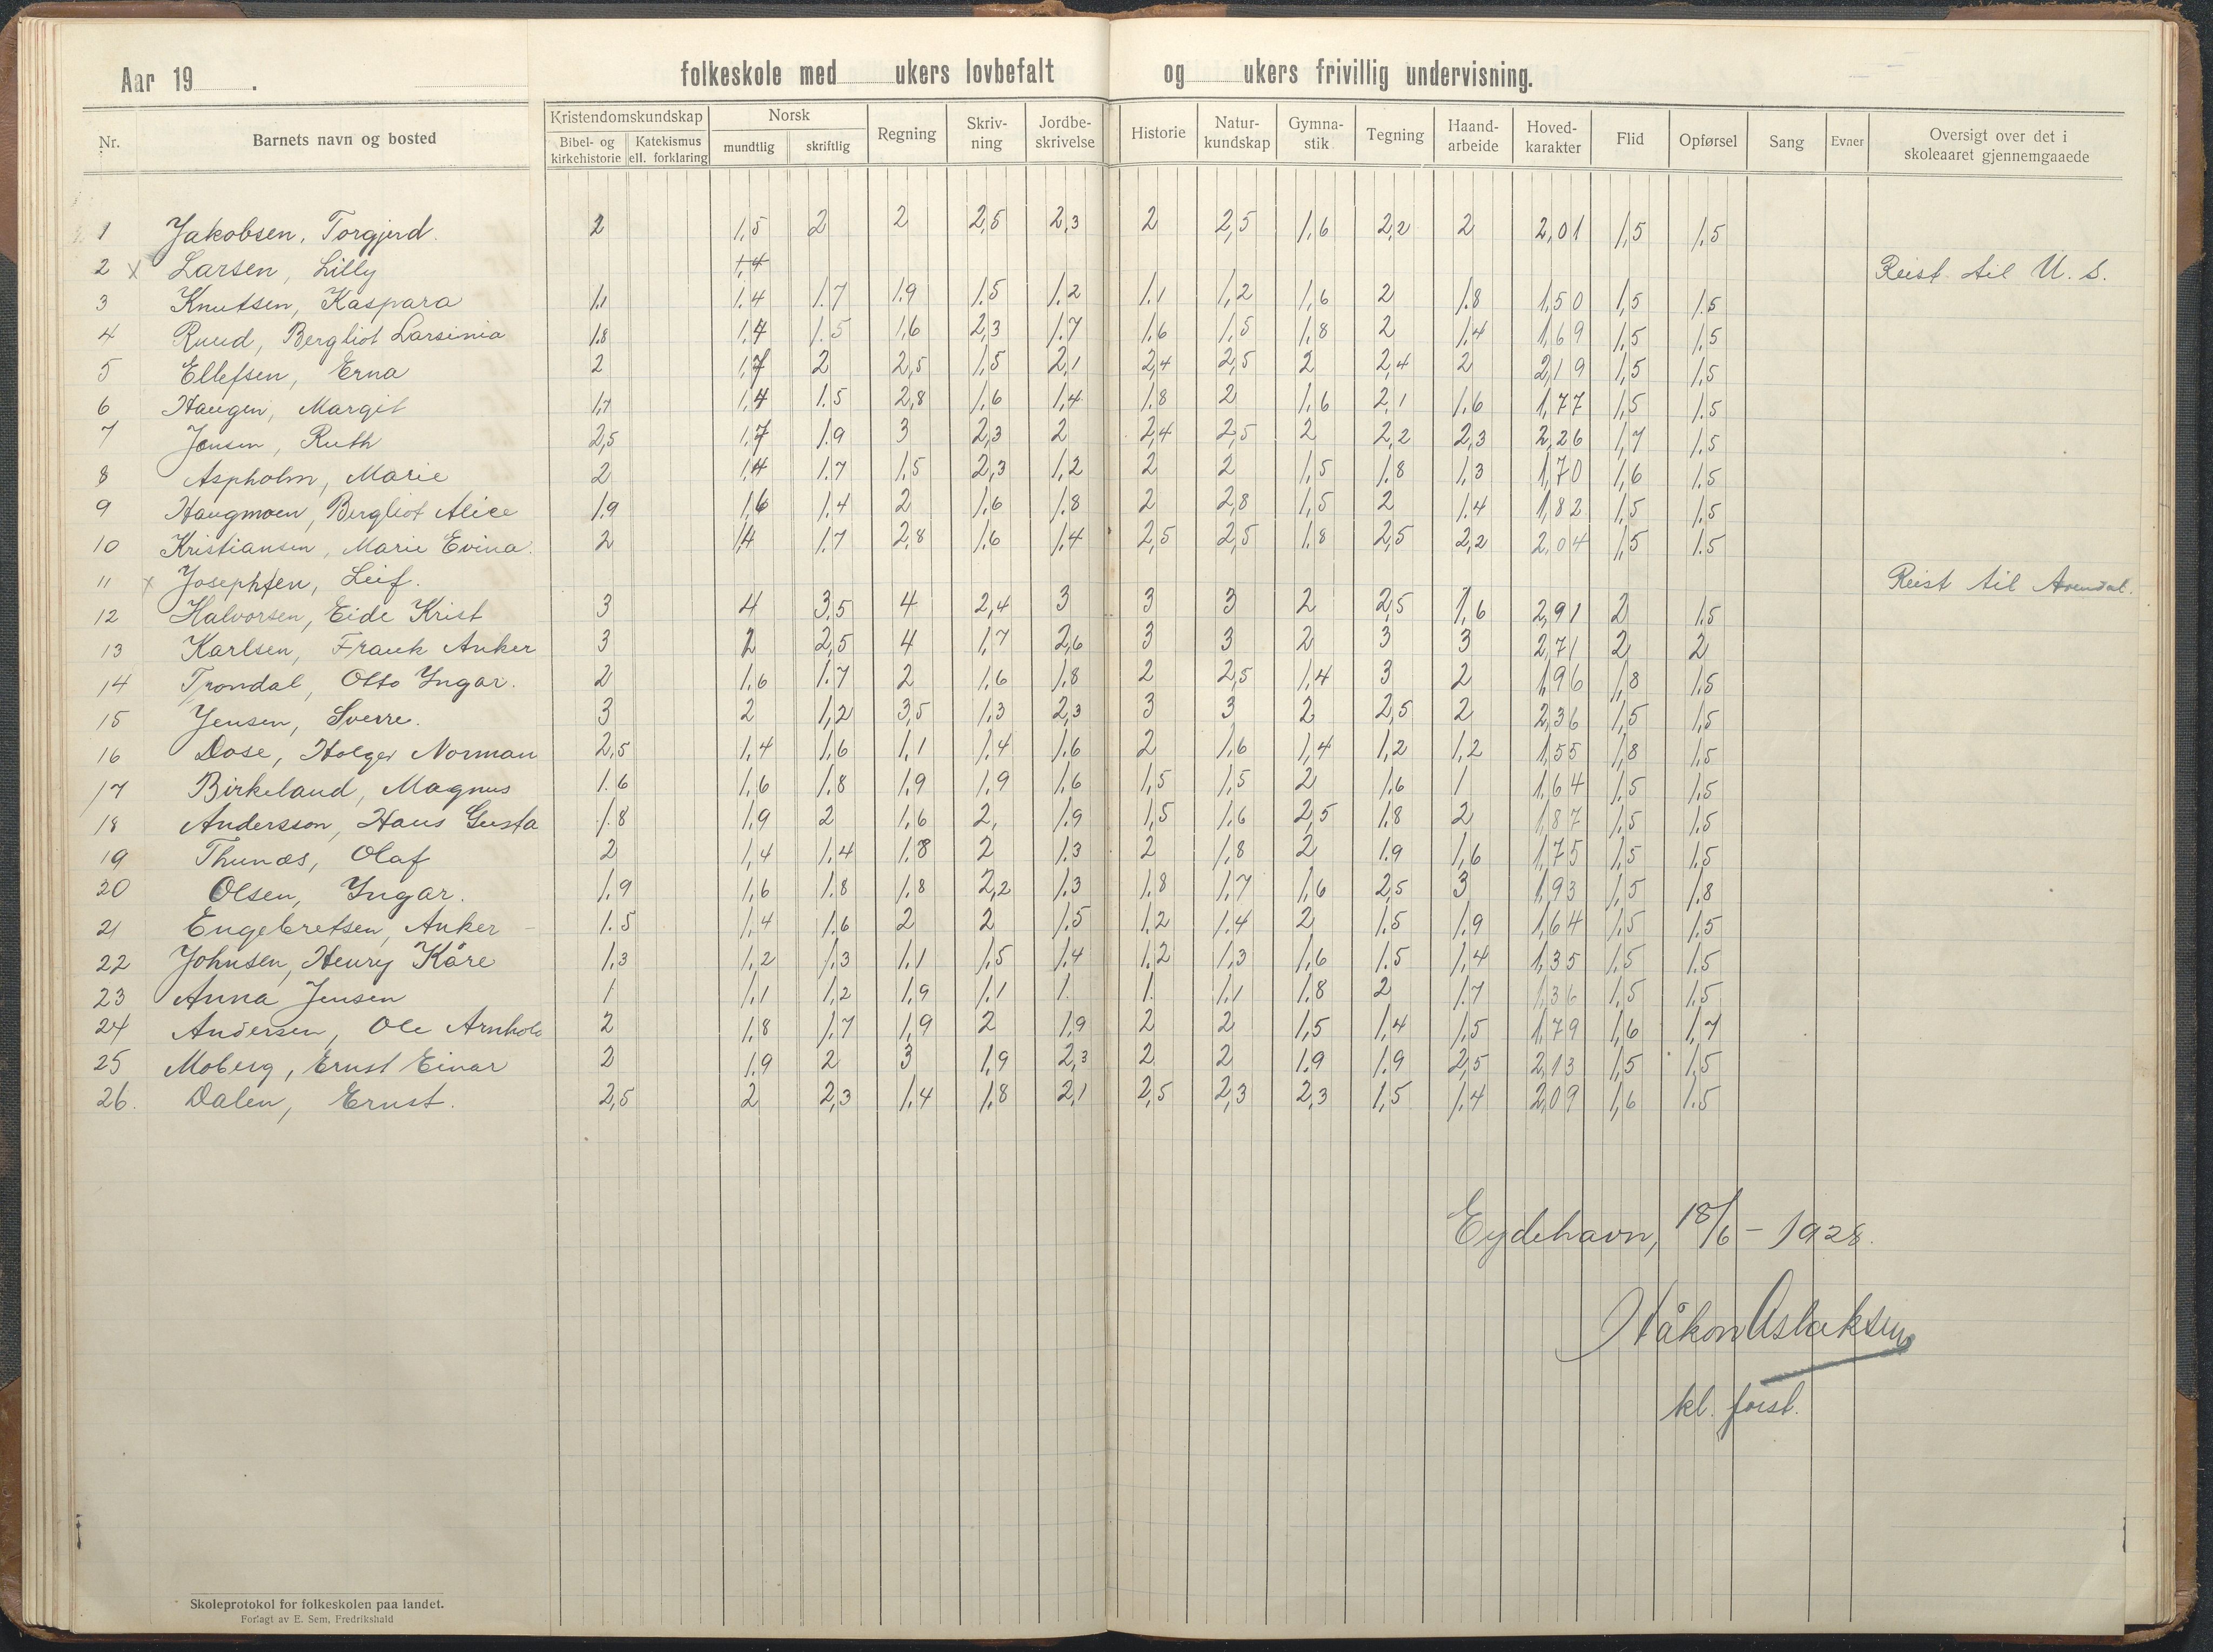 Aar 19 . folkeskole med ukers lovbefalt og ukers frivillig undervisning.
Nr. Barnets navn og bosted Kristendomskundskap Bibel- og kirkehistorie Katekismus ell. forklaring Norsk mundtlig skriftlig Regning Skriv-ning Jordbe-skrivelse Historie Natur-kundskap Gymna-stik Tegning Haand-arbeide Hoved-karakter Flid Opførsel Sang Evner Oversigt over det i skoleaaret gjennemgaaede
1 Jakobsen, Torgjerd. 2 1,5 2 2 2,5 2,3 2 2,5 1,6 2,2 2 2,01 1,5 1,5
2 x Larsen, Lilly 1,4 Reist til U. S.
3 Knutsen, Kaspara 1,1 1,4 1,7 1,9 1,5 1,2 1,1 1,2 1,6 2 1,8 1,50 1,5 1,5
4 Ruud, Bergliot Larsinia 1,8 1,4 1,5 1,6 2,3 1,7 1,6 1,5 1,8 2 1,4 1,69 1,5 1,5
5 Ellefsen, Erna 2 1,7 2 2,5 1,5 2,1 2,4 2,5 2 2,4 2 2,19 1,5 1,5
6 Haugen, Margit 1,7 1,4 1,5 2,8 1,6 1,4 1,8 2 1,6 2,1 1,6 1,77 1,5 1,5
7 Jensen, Ruth 2,5 1,7 1,9 3 2,3 2 2,4 2,5 2 2,2 2,3 2,26 1,7 1,5
8 Aspholm, Marie 2 1,4 1,7 1,5 2,3 1,2 2 2 1,5 1,8 1,3 1,70 1,6 1,5
9 Haugmoen, Bergliot Alice 1,9 1,6 1,4 2 1,6 1,8 2 2,8 1,5 2 1,4 1,82 1,5 1,5
10 Kristiansen, Marie Evina. 2 1,4 1,7 2,8 1,6 1,4 2,5 2,5 1,8 2,5 2,2 2,04 1,5 1,5
11 x Josephsen, Leif. Reist til Arendal.
12 Halvorsen, Eide Krist 3 4 3,5 4 2,4 3 3 3 2 2,5 1,6 2,91 2 1,5
13 Karlsen, Frank Anker 3 2 2,5 4 1,7 2,6 3 3 2 3 3 2,71 2 2
14 Trondal, Otto Yngar. 2 1,6 1,7 2 1,6 1,8 2 2,5 1,4 3 2 1,96 1,8 1,5
15 Jensen, Sverre. 3 2 1,2 3,5 1,3 2,3 3 3 2 2,5 2 2,36 1,5 1,5
16 Dose, Holger Norman 2,5 1,4 1,6 1,1 1,4 1,6 2 1,6 1,4 1,2 1,2 1,55 1,8 1,5
17 Birkeland, Magnus 1,6 1,6 1,8 1,9 1,9 1,6 1,5 1,5 2 1,6 1 1,64 1,5 1,5
18 Andersson, Hans Gusta 1,8 1,9 2 1,6 2, 1,9 1,5 1,6 2,5 1,8 2 1,87 1,5 1,5
19 Thunæs, Olaf 2 1,4 1,4 1,8 2 1,3 2 1,8 2 1,9 1,6 1,75 1,5 1,5
20 Olsen, Yngar. 1,9 1,6 1,8 1,8 2,2 1,3 1,8 1,7 1,6 2,5 3 1,93 1,5 1,8
21 Engebretsen, Anker 1.5 1,4 1,6 2 2 1,5 1,2 1,4 2 1,5 1,9 1,64 1,5 1,5
22 Johnsen, Henry Kåre 1,3 1,2 1,3 1,1 1,5 1,4 1,2 1,3 1,6 1,5 1,4 1,35 1,5 1,5
23 Anna Jensen 1 1,1 1,2 1,9 1,1 1. 1. 1,1 1,8 2 1,7 1,36 1,5 1,5
24 Andersen, Ole Arnhold 2 1,8 1,7 1,9 2 1,9 2 2 1,5 1,4 1,5 1,79 1,6 1,7
25 Moberg, Ernst Einar 2 1,9 2 3 1,9 2,3 2 2 1,9 1,9 2,5 2,13 1,5 1,5
26. Dalen, Ernst. 2,5 2 2,3 1,4 1,8 2,1 2,5 2,3 2,3 1,5 1,4 2,09 1,6 1,5
Eydehavn, 18/6 - 1928.
Håkon Aslaksen
kl. forst.
Skoleprotokol for folkeskolen paa landet.
Forlagt av E. Sem, Fredrikshald